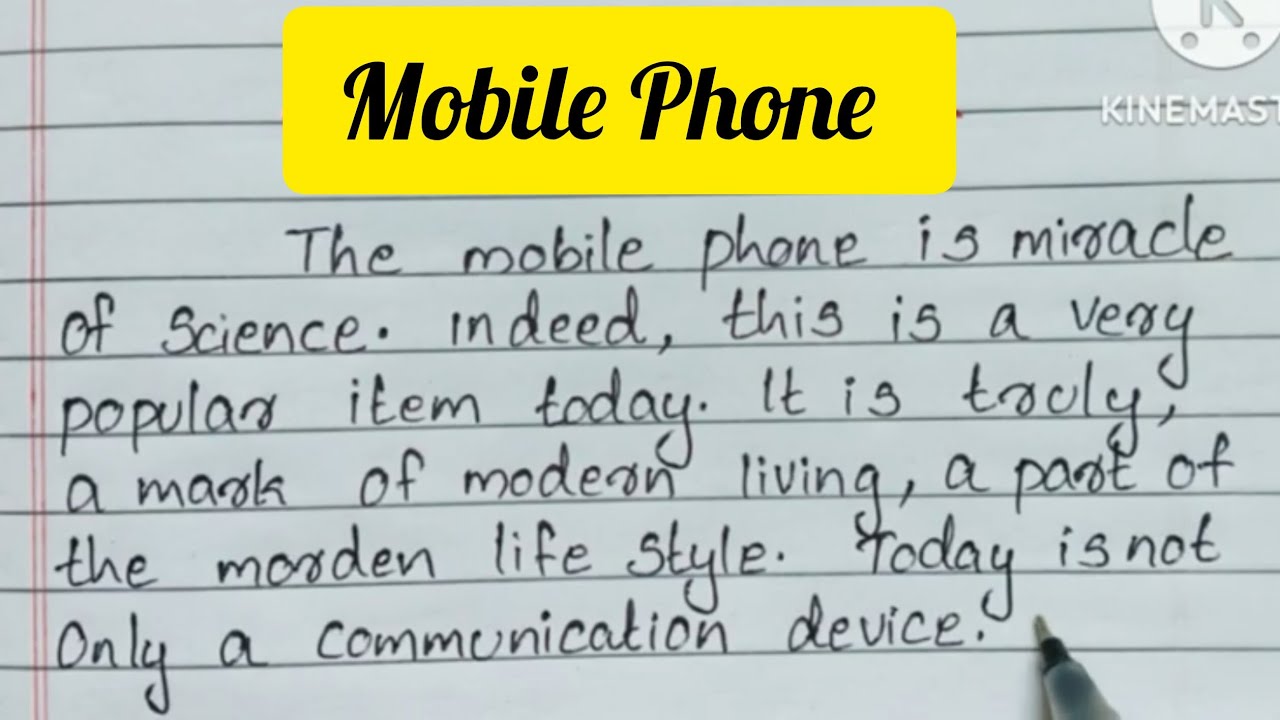 Mobile Phone
KINEMAST
The mobile phone is miracle
of science. indeed, this is a very
popular item today. It is truly,
a mark of modern living, a part of
the morden life style. Today is not
Only a communication device.